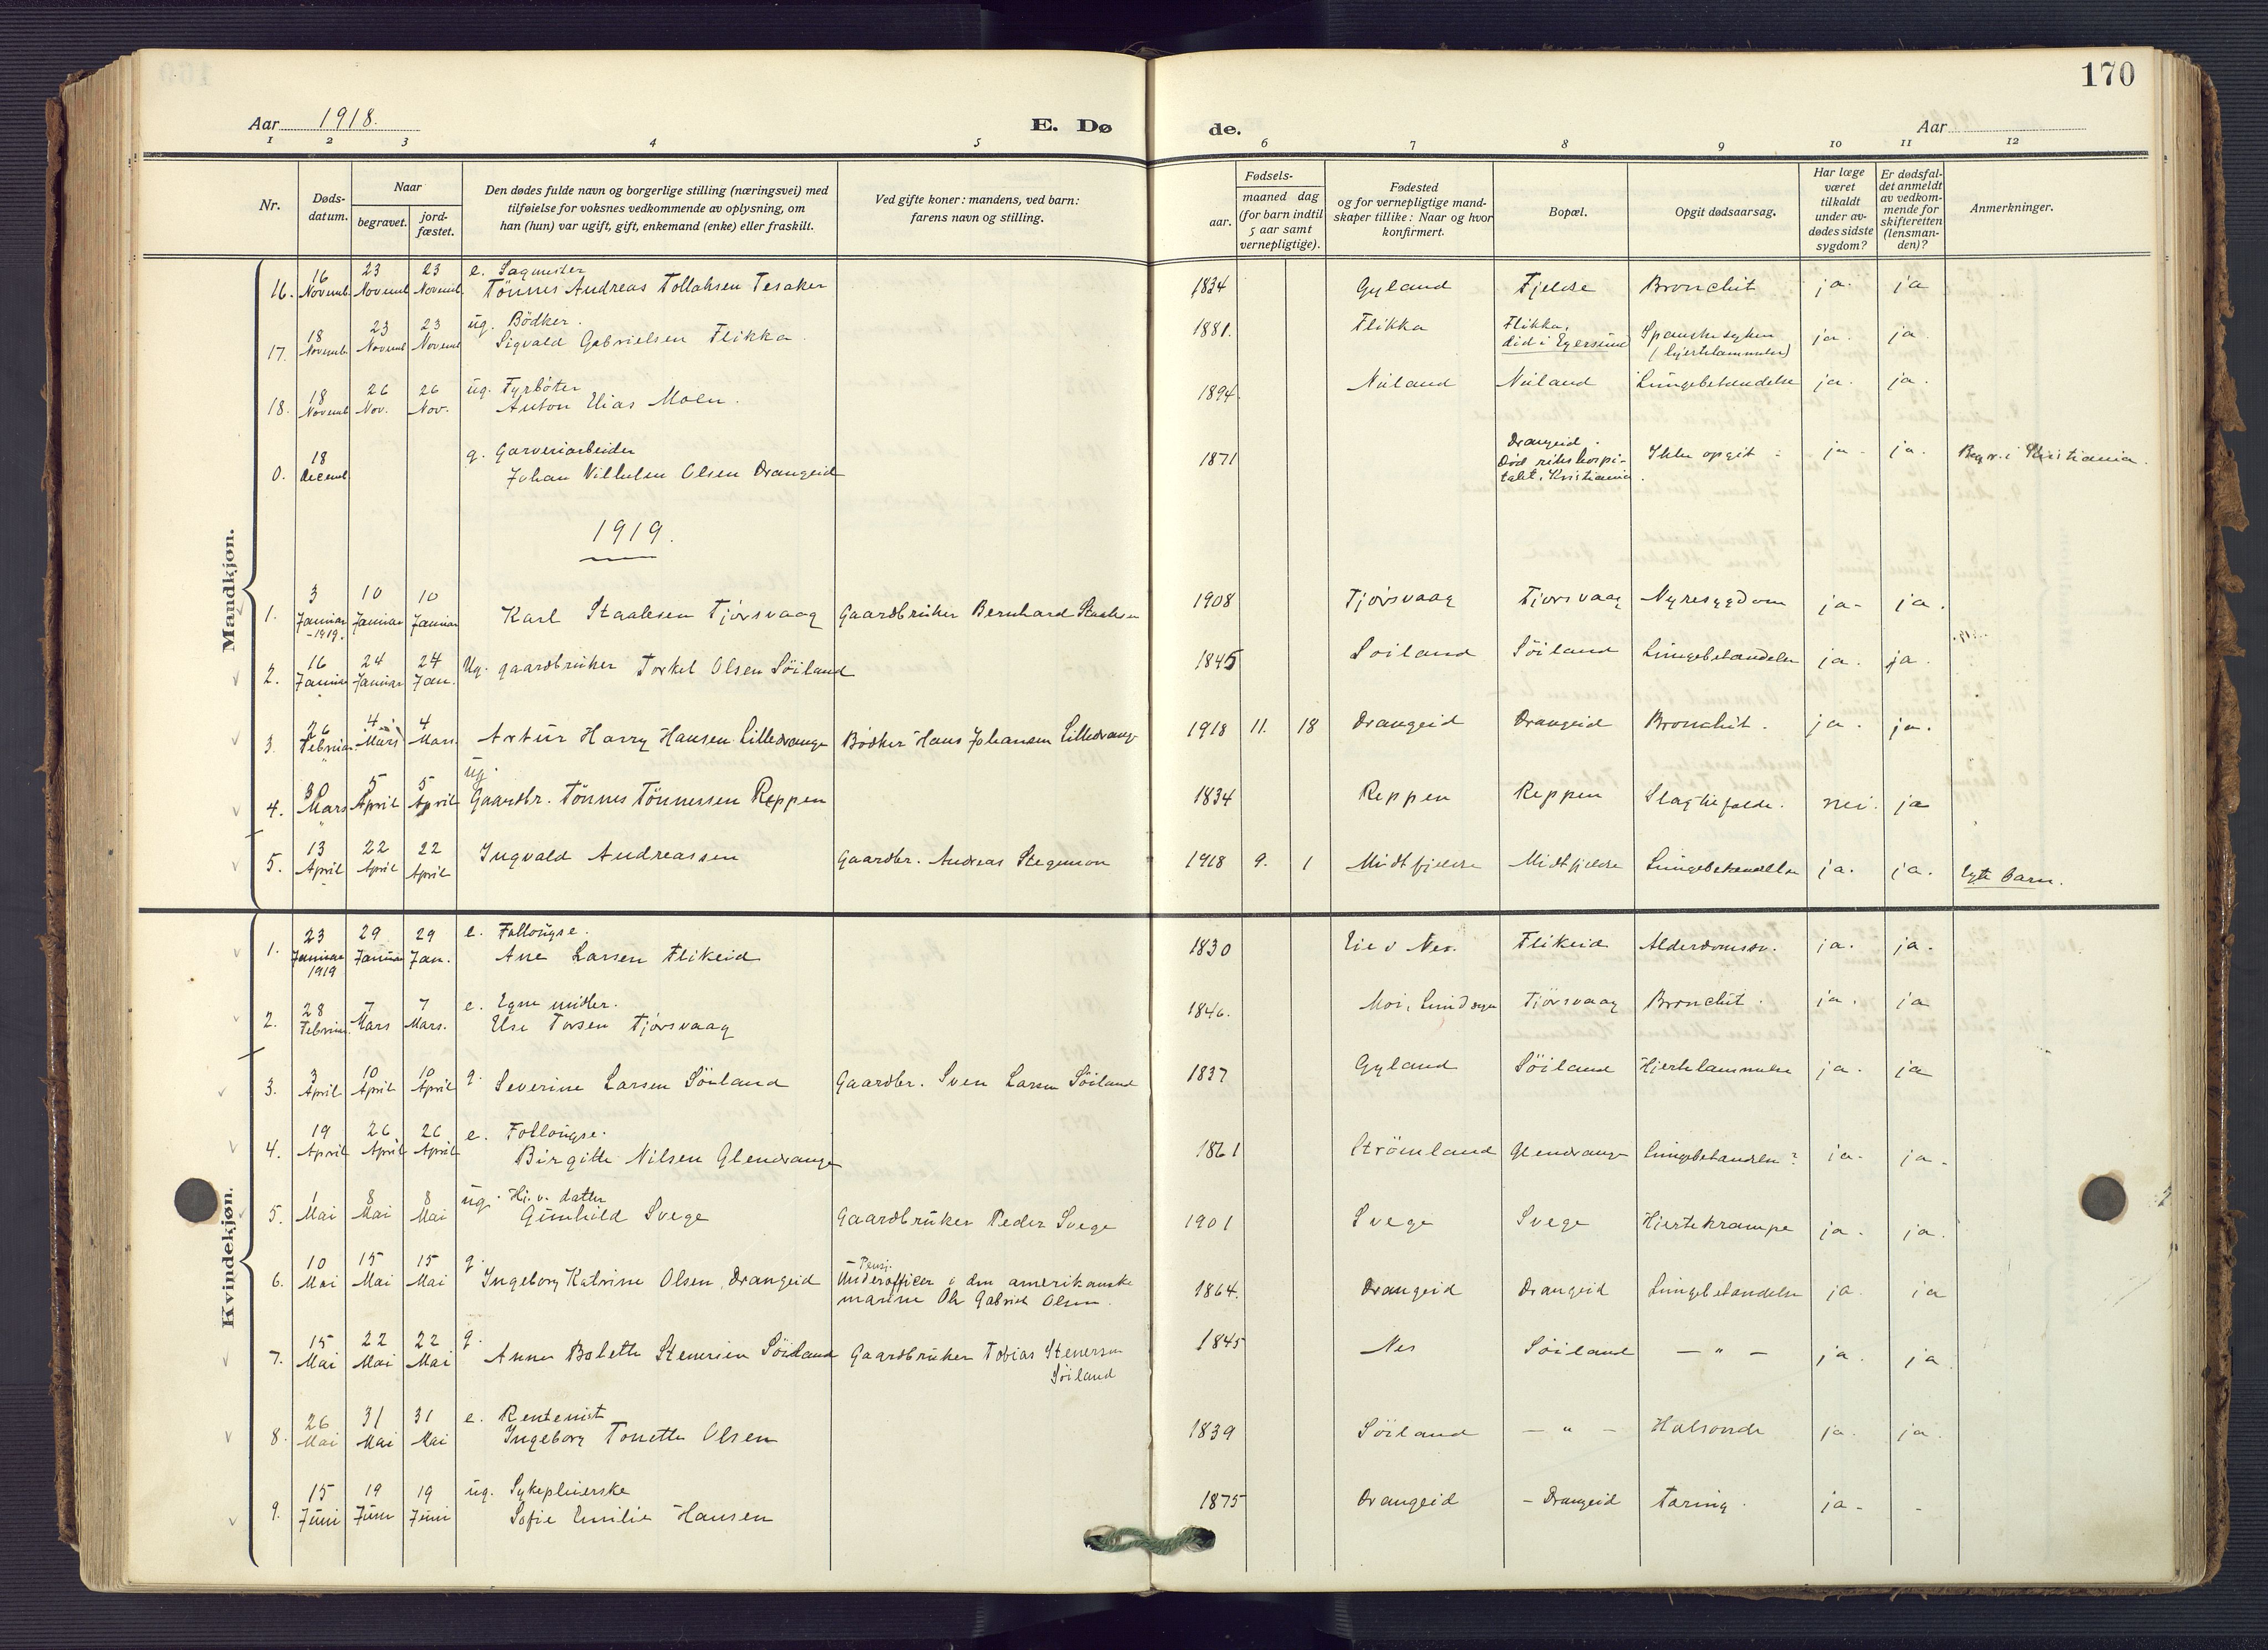 170
Aar 1918.
E. Dø de.
Aar
1 2 3 4 5 6 7 8 9 10 11 12
Nr.
Døds-datum.
Naar
begravet.
jord-fæstet.
Den dødes fulde navn og borgerlige stilling (næringsvei) med
tilføielse for voksnes vedkommende av oplysning, om
han (hun) var ugift, gift, enkemand (enke) eller fraskilt.
Ved gifte koner: mandens, ved barn:
farens navn og stilling.
Fødsels-
aar.
maaned dag
(for barn indtil
5 aar samt
vernepligtige).
Fødested
og for vernepligtige mand-
skaper tillike: Naar og hvor
konfirmert.
Bopæl.
Opgit dødsaarsag.
Har læge
været
tilkaldt
under av-
dødes sidste
sygdom?
Er dødsfal-
det anmeldt
av vedkom-
mende for
skifteretten
(lensman-
den)?
Anmerkninger.
Mandkjøn.
16. 16 Novemb. 23 Novemb. 23 Novemb. e.
Tönnes Andreas Tollaksen Tesaker 1834 Gyland Fjelde Bronchit ja. ja
17. 18 Novemb. 23 Novemb. 23 Novemb. ug. Bödker.
Sigvald Gabrielsen Flikka. 1881. Flikka Flikka, död i Egersund Spanskesyken (hjertelammelse) ja. ja.
18. 18 Novemb. 26 Nov. 26 Nov. ug. Fyrböter
Anton Elias Moen. 1894. Nuland Nuland Lungebetændelse ja. ja.
0. 18 Decemb. g. Garveriarbeider
Johan Vilhelm Olsen Drangeid 1871 Drangeid. Död rikshospi-
talet, Kristiania. Ikke opgit ja. ja. Begr. i Kristiania.
1919.
1. 3 Januar -1919. 10 Januar 10 Januar Karl Staalesen Tjörsvaag Gaardbruker Bernhard Staalesen 1908 Tjörsvaag Tjörsvaag Nyresygdom ja. ja.
2. 16 Januar 24 Januar 24 Jan. Ug. gaardbruker Torkel Olsen Söiland 1845 Söiland Söiland Lungebetændelse ja. ja.
3. 26 Februar 4 Mars 4 Mars. Artur Harry Hansen Lilledrange Bödker Hans Johansen Lilledrange 1918 11. 18 Drangeid Drangeid Bronchit. ja. ja.
4. 30 Mars 5 April 5 April ug.
Gaardbr. Tönnes Tönnessen Reppen 1834 Reppen Reppen Slagtilfælde. nei. ja
5. 13 April 22 April 22 April Ingvald Andreassen Gaardbr. Andreas Stegemon 1918 9. 1 Midtfjelde Midtfjelde Lungebetændelse ja. ja. Egte barn.
Kvindekjøn.
1. 23 Januar 1919 29 Januar 29 Jan. e. Follougse.
Ane Larsen Flikeid 1830 Eie v Nes. Flikeid Alderdomssv. ja. ja.
2. 28 Februar 7 Mars 7 Mars. e. Egne midler.
Else Torsen Tjörsvaag 1846. Moi, Lund Tjörsvaag Bronchit. ja. ja
3. 3 April 10 April 10 April g. Severine Larsen Söiland Gaardbr. Sven Larsen Söiland 1837 Gyland Söiland Hjertelammelse ja. ja
4. 19 April 26 April 26 April e. Follougse.
Birgitte Nilsen Glendrange 1861 Strömland Glendrange Lungebetændelse? ja. ja.
5. 1 Mai 8 Mai 8 Mai ug. Hj. v. datter
Gunhild Svege Gaardbruker Peder Svege 1901 Svege Svege Hjertekrampe ja. ja.
6. 10 Mai 15 Mai 15 Mai g. Ingeborg Katrine Olsen, Drangeid Pensj.
Underofficer i den amerikanske
marine Ole Gabriel Olsen. 1864. Drangeid Drangeid Lungebetændelse ja. ja
7. 15 Mai 22 Mai 22 Mai g. Anne Bolette Stenersen Söiland Gaardbruker Tobias Stenersen
Söiland 1845 Nes Söiland — " — ja. ja.
8. 26 Mai 31 Mai 31 Mai e. Rentenist
Ingeborg Tonette Olsen 1839 Söiland — " — Halsonde ja. ja.
9. 15 Juni 19 Juni 19 Juni ug. Sykepleierske
Sofie Emilie Hansen 1875 Drangeid - Drangeid Tæring. ja. -